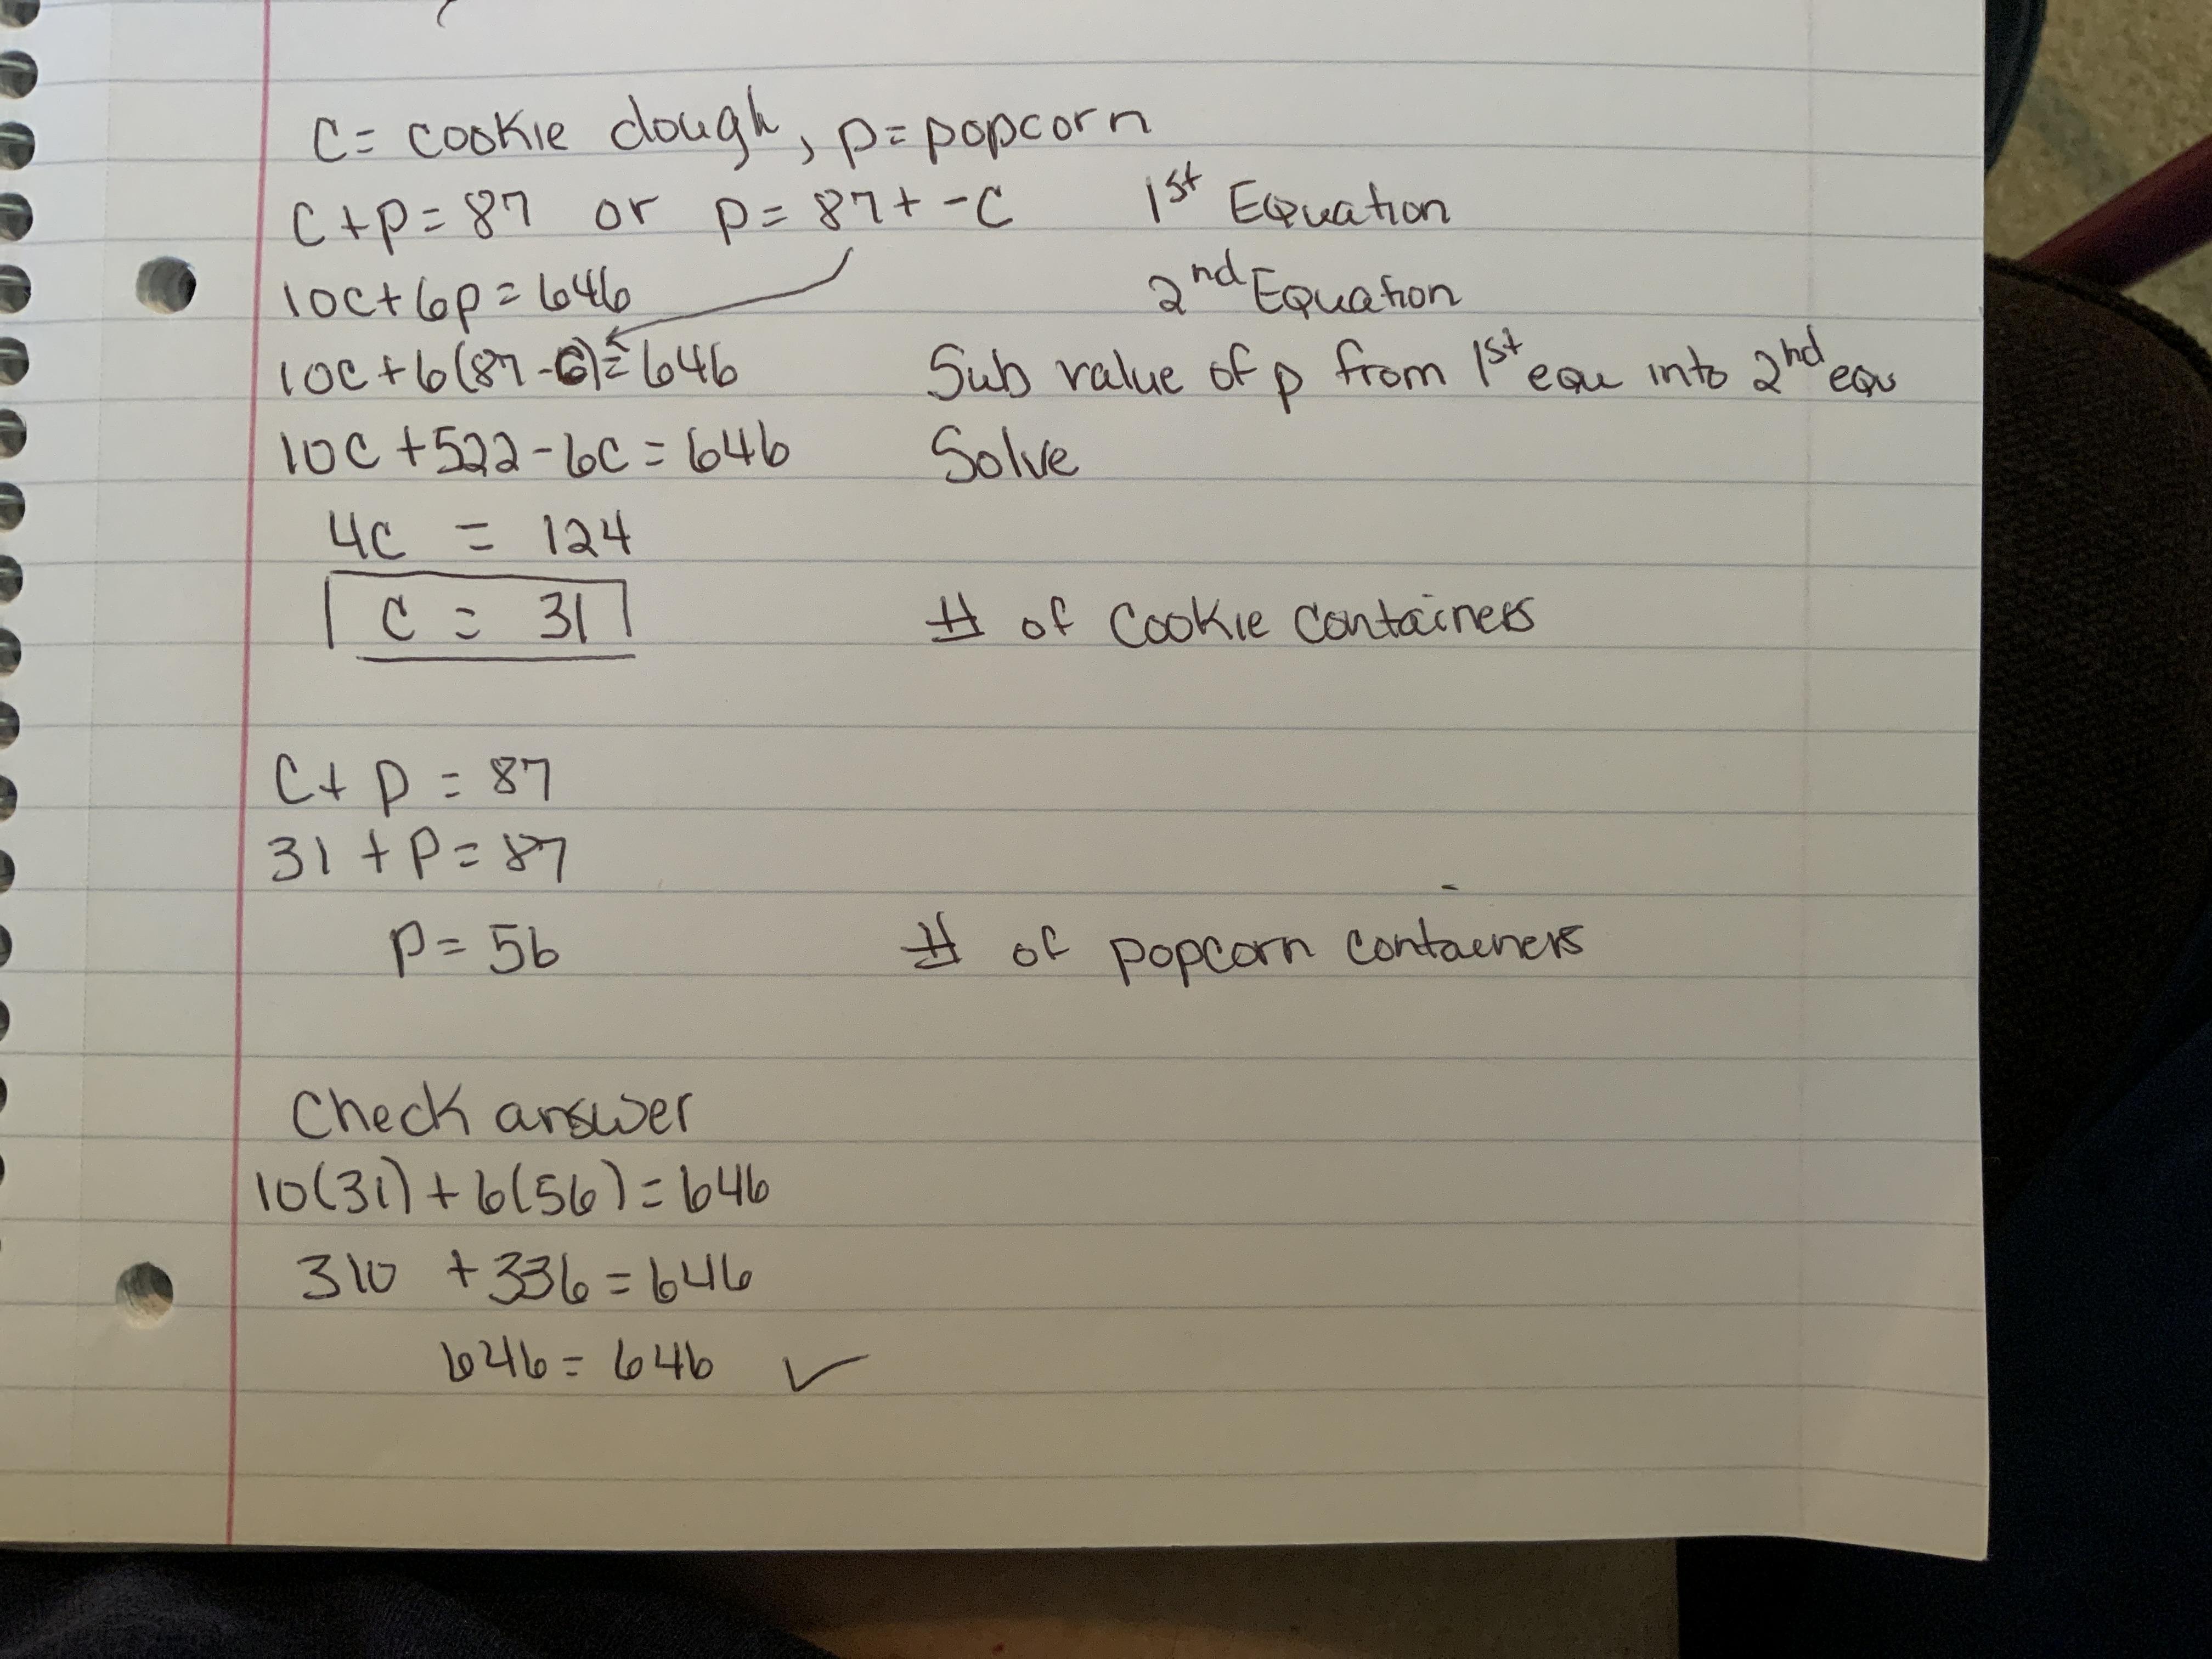 C = cookie dough, p = popcorn
C + p = 87 or p = 87 + -C 1st Equation
10C + 6p = 646 2nd Equation
10C + 6(87 - C) = 646 Sub value of p from 1st equ into 2nd equ
10C + 522 - 6C = 646 Solve
4C = 124
C = 31 # of Cookie Containers
C + p = 87
31 + P = 87
P = 56 # of popcorn containers
Check answer
10(31) + 6(56) = 646
310 + 336 = 646
646 = 646 ✓